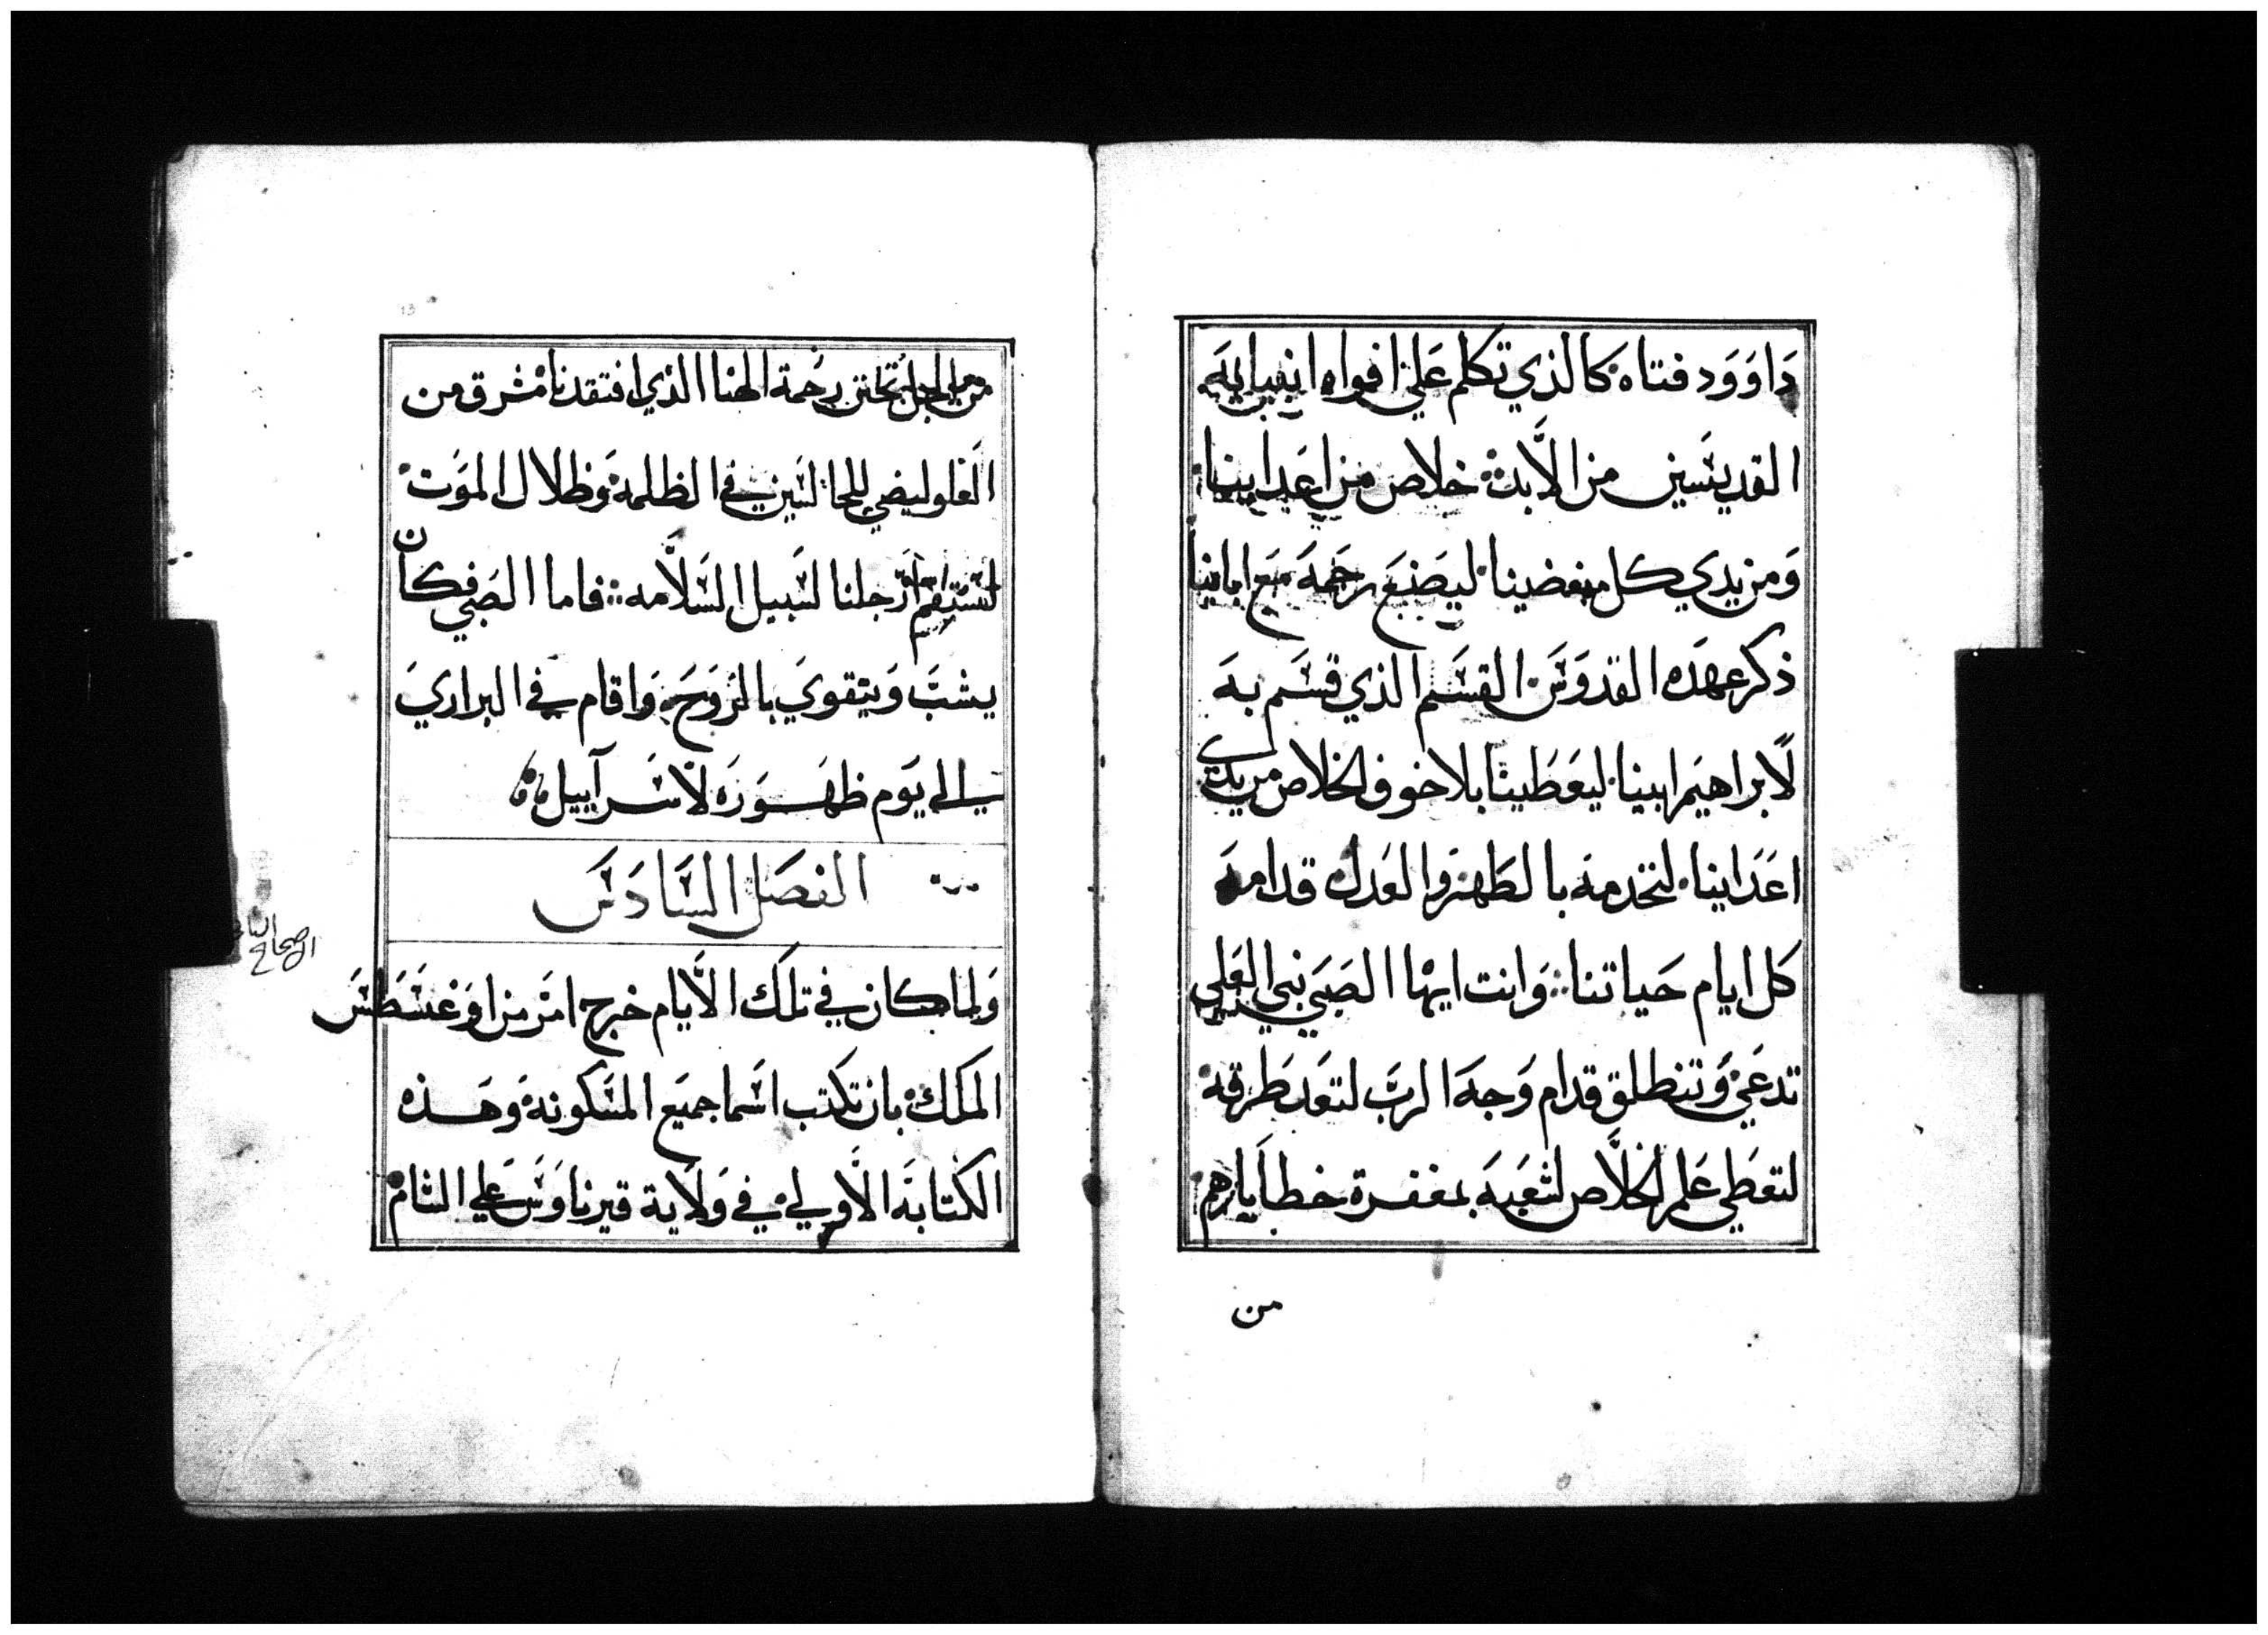 داوود فتاه كالذي تكلم علي افواه انبيايه
القديسين من الابد خلاص من اعداينا
ومن يدي كل مبغضينا ليصنع رحمه مع اباينا
ذكر عهده القدوس القسم الذي قسم به
لابراهيم ابينا ليعطينا بلا خوف الخلاص من يدي
اعداينا لنخدمه بالطهر والعدل قدامه
كل ايام حياتنا وانت ايها الصبي نبي العلي
تدعي وتنطلق قدام وجه الرب لتعد طرقه
لتعطي علم الخلاص لشعبه بمغفرة خطاياهم
من
من اجل تحنن رحمة الهنا الذي افتقدنا مشرق من
العلو ليضي للجالسين في الظلمة وظلال الموت
لتستقيم ارجلنا لسبيل السلامه فاما الصبي فكان
يشب ويتقوي بالروح واقام في البراري
الي يوم ظهوره لاسراييل
الفصل السادس
ولما كان في تلك الايام خرج امر من اوغسطس
الملك بان تكتب اسما جميع المسكونة وهذه
الكتابة الاولي في ولاية قيرناوس علي الشام
الاصحاح